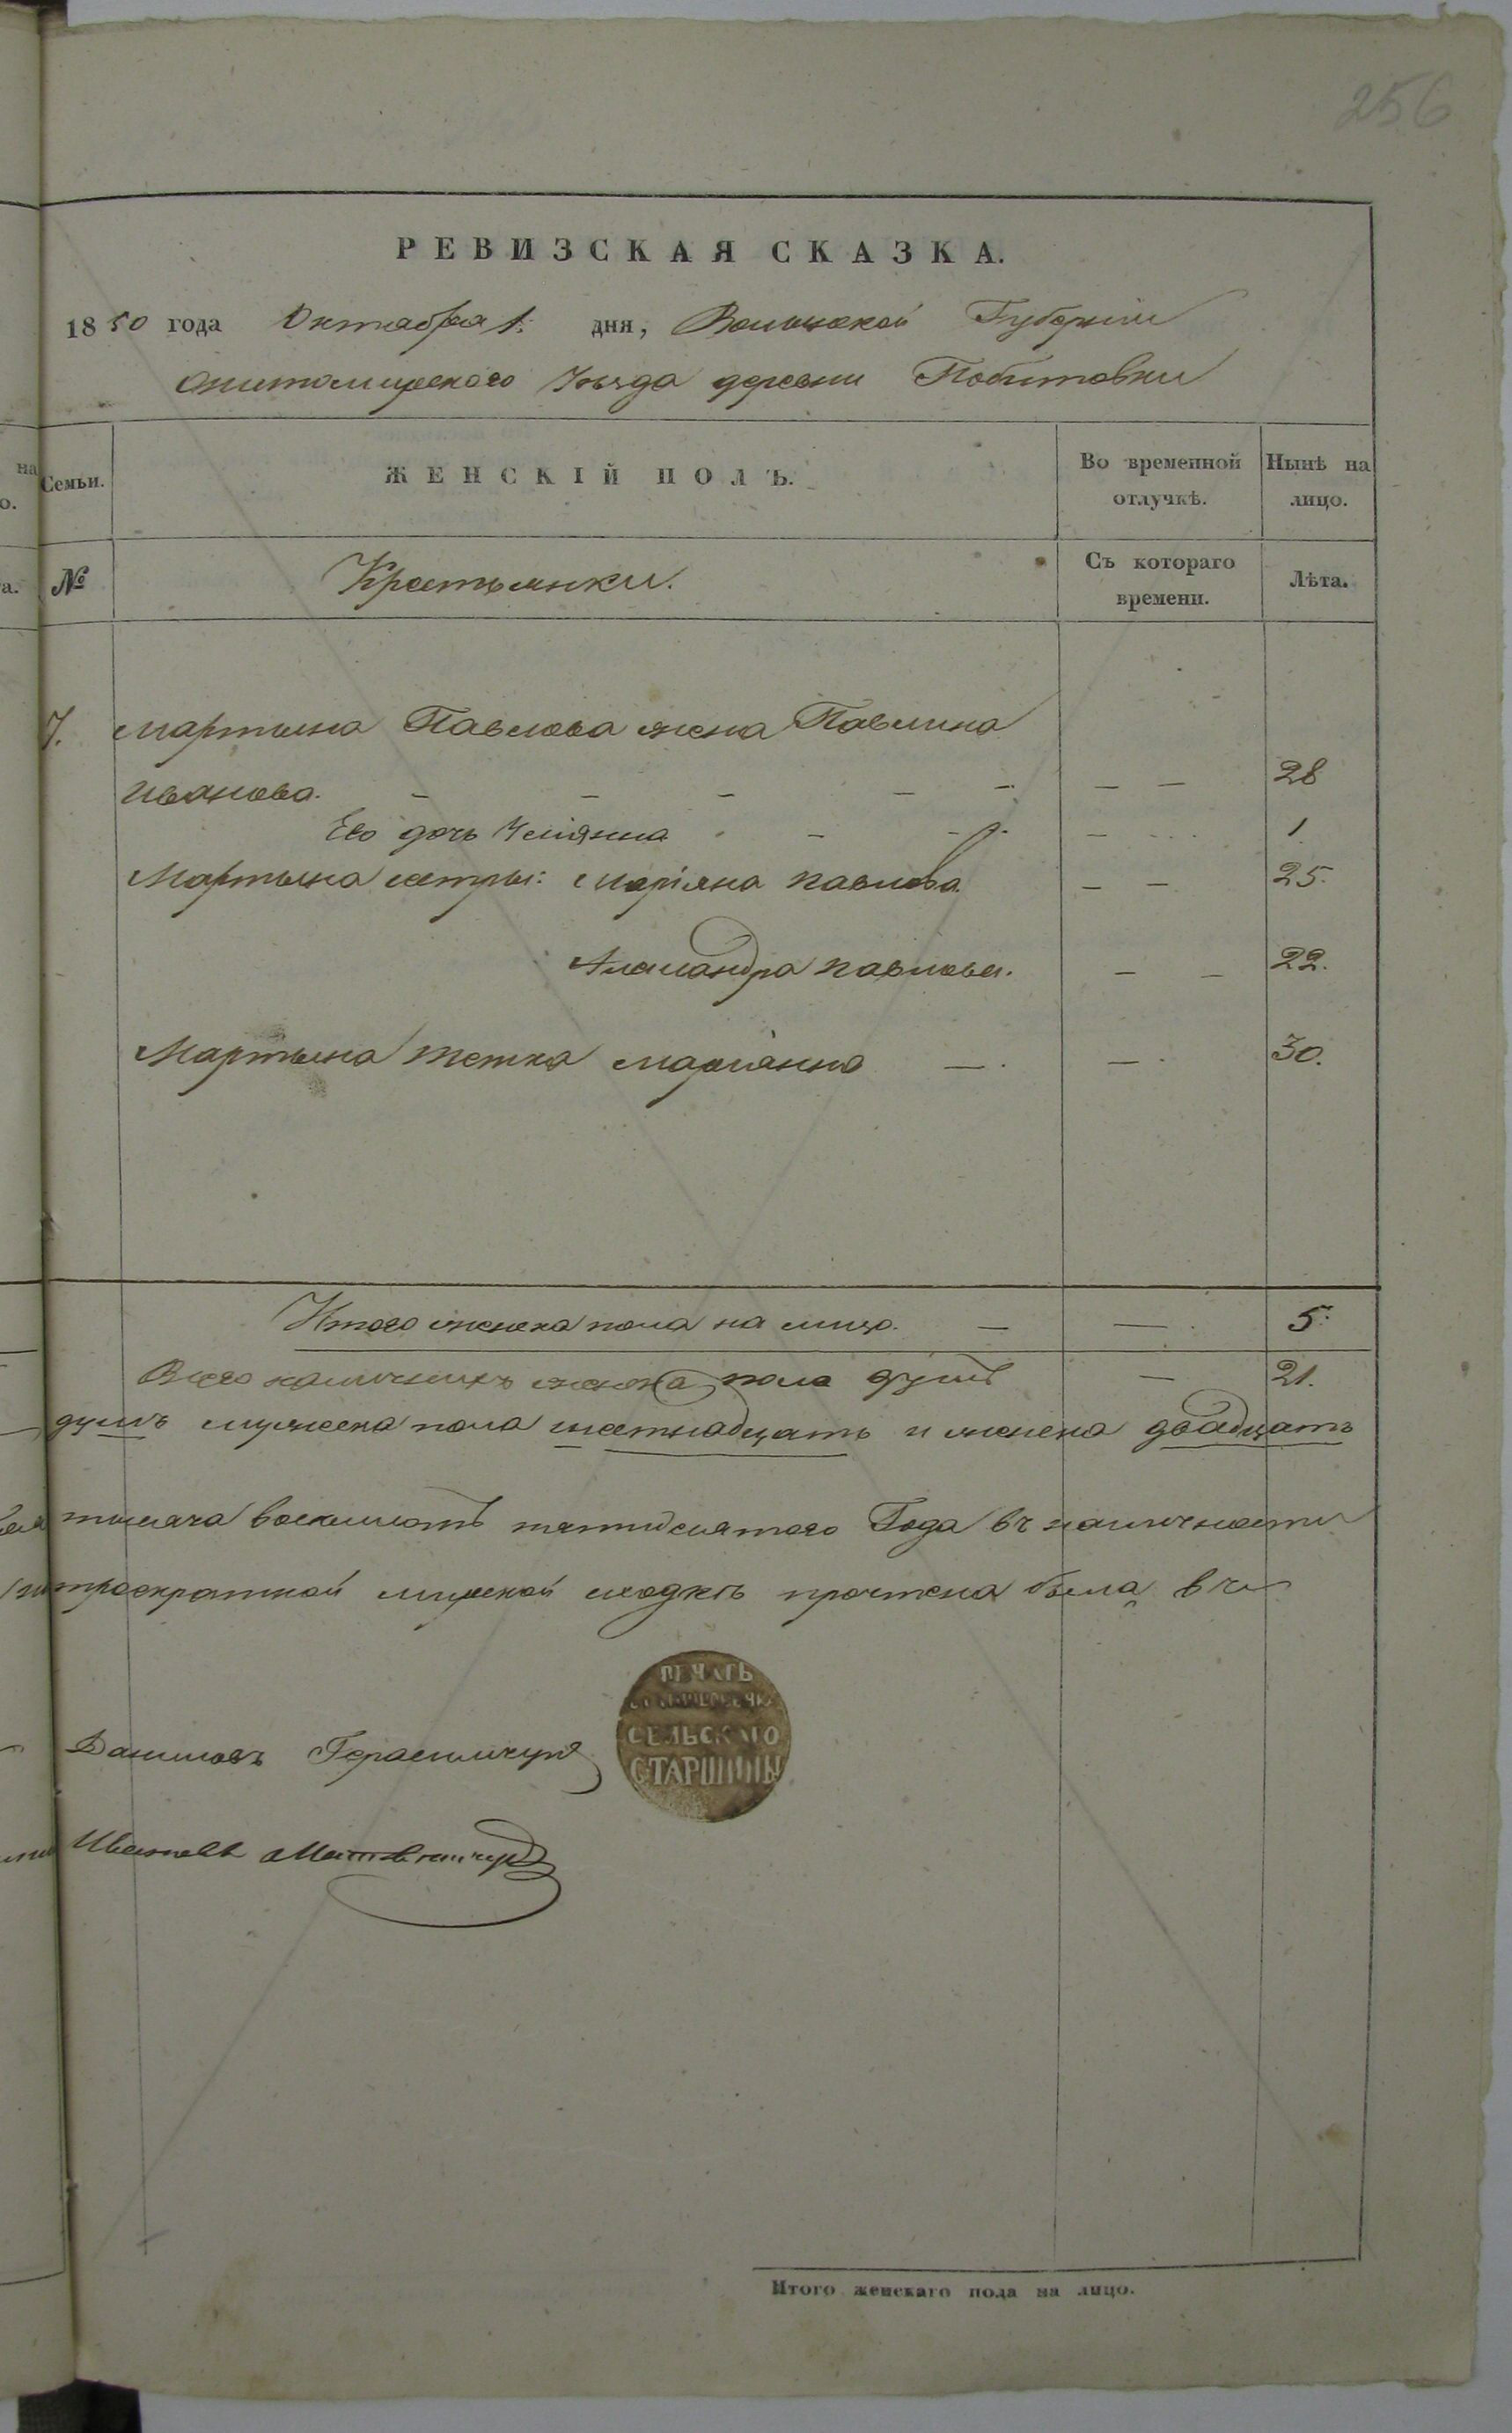 256
РЕВИЗСКАЯ СКАЗКА.
1850 года Октября 1. дня, Волынской Губерніи
Житомирскаго Уѣзда деревни
на
о.
Семьи. ЖЕНСКІЙ ПОЛЪ. Во временной отлучкѣ. Нынѣ на лицо.
а. № Крестьянки. Съ котораго времени. Лѣта.
7. Мартына Павлова жена Павлина
Иванова. — — — — — — — 28
Его дочь Уліянна — — — 1
Мартына сестры: Маріяна Павлова — — 25.
Александра Павлова. — — 22.
Мартына тетка Маріянна — — 30.
Итого женска пола на лицо. — — 5.
Всего наличныхъ женска пола душъ — 21.
душъ мужеска пола шестнадцать и женска двадцать
тысяча восемьсотъ пятидесятого Года въ наличности
троекратной мирской сходкѣ прочтена была въ
Даниловъ Герасимчукъ
ПЕЧАТЬ
СЕЛЬСКАГО
СТАРШИНЫ
Ивановъ
Итого женскаго пола на лицо.